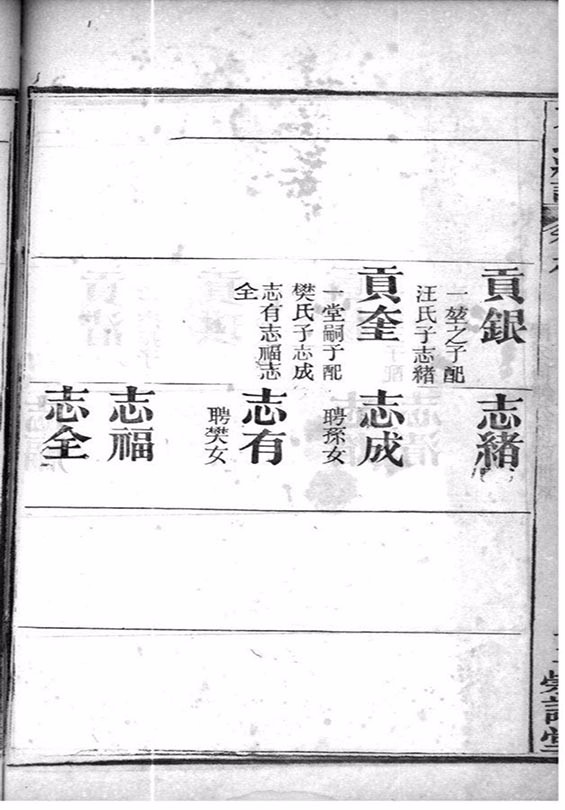 貢銀
一堃之子配
汪氏子志緒
貢奎
一堂嗣子配
樊氏子志成
志有志福志
全
志緒
志成
聘孫女
志有
聘樊女
志福
志全